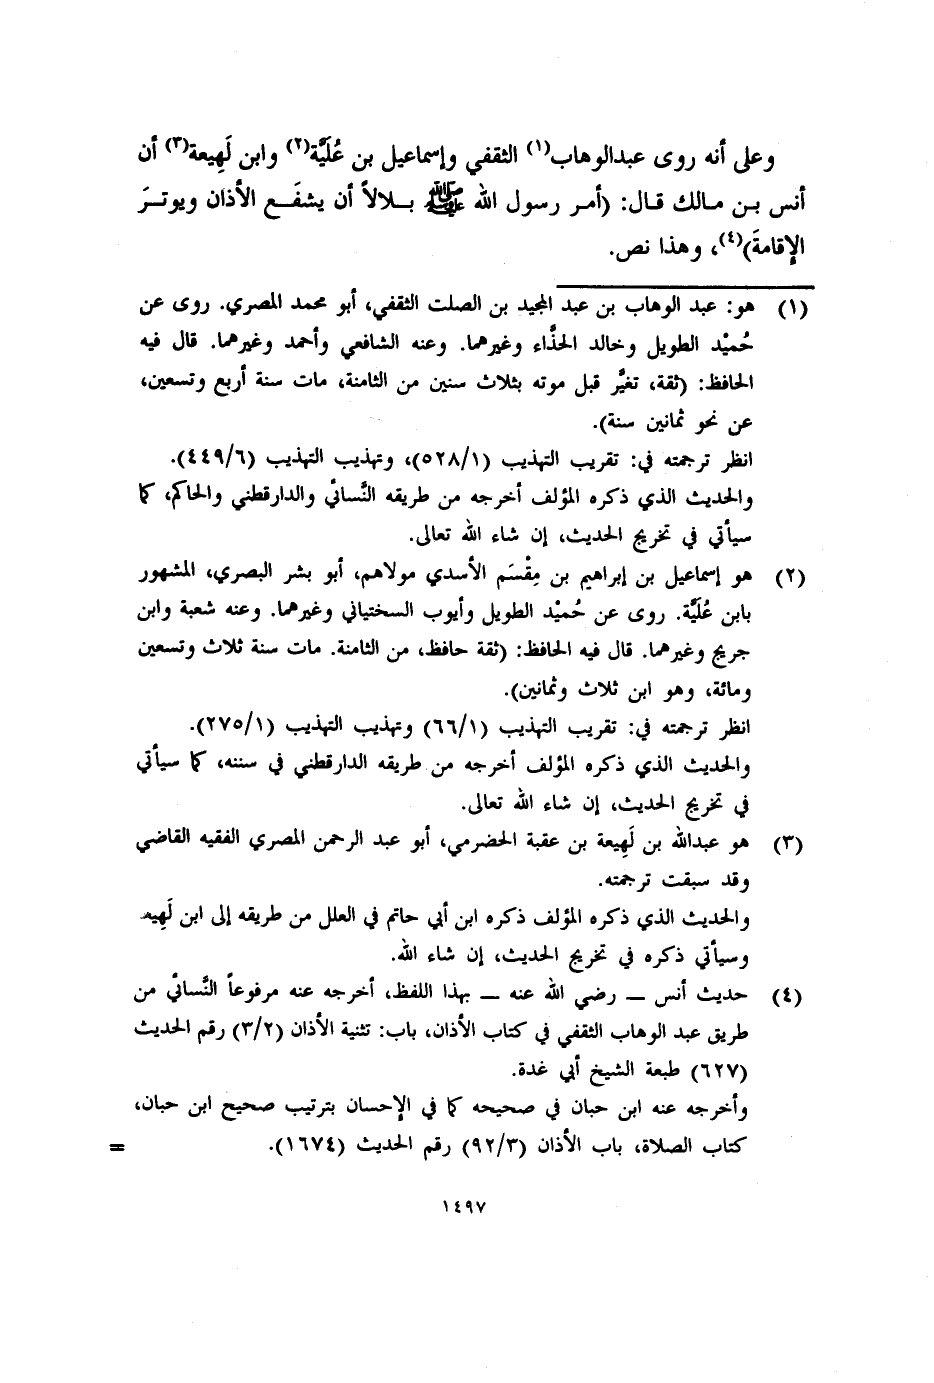 وعلى أنه روى عبدالوهاب(١) الثقفي وإسماعيل بن عُلَيَّة(٢) وابن لَهِيعة(٣) أن
أنس بن مالك قال: (أمر رسول الله ﷺ بلالاً أن يشفَع الأذان ويوترَ
الإقامةَ)(٤)، وهذا نص.
(١) هو: عبد الوهاب بن عبد المجيد بن الصلت الثقفي، أبو محمد المصري. روى عن
حُميْد الطويل وخالد الحذَّاء وغيرهما. وعنه الشافعي وأحمد وغيرهما. قال فيه
الحافظ: (ثقة، تغيَّر قبل موته بثلاث سنين من الثامنة، مات سنة أربع وتسعين،
عن نحو ثمانين سنة).
انظر ترجمته في: تقريب التهذيب (٥٢٨/١)، وتهذيب التهذيب (٤٤٩/٦).
والحديث الذي ذكره المؤلف أخرجه من طريقه النَّسائي والدارقطني والحاكم، كما
سيأتي في تخريج الحديث، إن شاء الله تعالى.
(٢) هو إسماعيل بن إبراهيم بن مِقْسَم الأسدي مولاهم، أبو بشر البصري، المشهور
بابن عُلَيَّة. روى عن حُميْد الطويل وأيوب السختياني وغيرهما. وعنه شعبة وابن
جريج وغيرهما. قال فيه الحافظ: (ثقة حافظ، من الثامنة. مات سنة ثلاث وتسعين
ومائة، وهو ابن ثلاث وثمانين).
انظر ترجمته في: تقريب التهذيب (٦٦/١) وتهذيب التهذيب (٢٧٥/١).
والحديث الذي ذكره المؤلف أخرجه من طريقه الدارقطني في سننه، كما سيأتي
في تخريج الحديث، إن شاء الله تعالى.
(٣) هو عبدالله بن لَهِيعة بن عقبة الحضرمي، أبو عبد الرحمن المصري الفقيه القاضي
وقد سبقت ترجمته.
والحديث الذي ذكره المؤلف ذكره ابن أبي حاتم في العلل من طريقه إلى ابن لَهِيعة
وسيأتي ذكره في تخريج الحديث، إن شاء الله.
(٤) حديث أنس ــ رضي الله عنه ــ بهذا اللفظ، أخرجه عنه مرفوعاً النَّسائي من
طريق عبد الوهاب الثقفي في كتاب الأذان، باب: تثنية الأذان (٣/٢) رقم الحديث
(٦٢٧) طبعة الشيخ أبي غدة.
وأخرجه عنه ابن حبان في صحيحه كما في الإحسان بترتيب صحيح ابن حبان،
كتاب الصلاة، باب الأذان (٩٢/٣) رقم الحديث (١٦٧٤). =
١٤٩٧